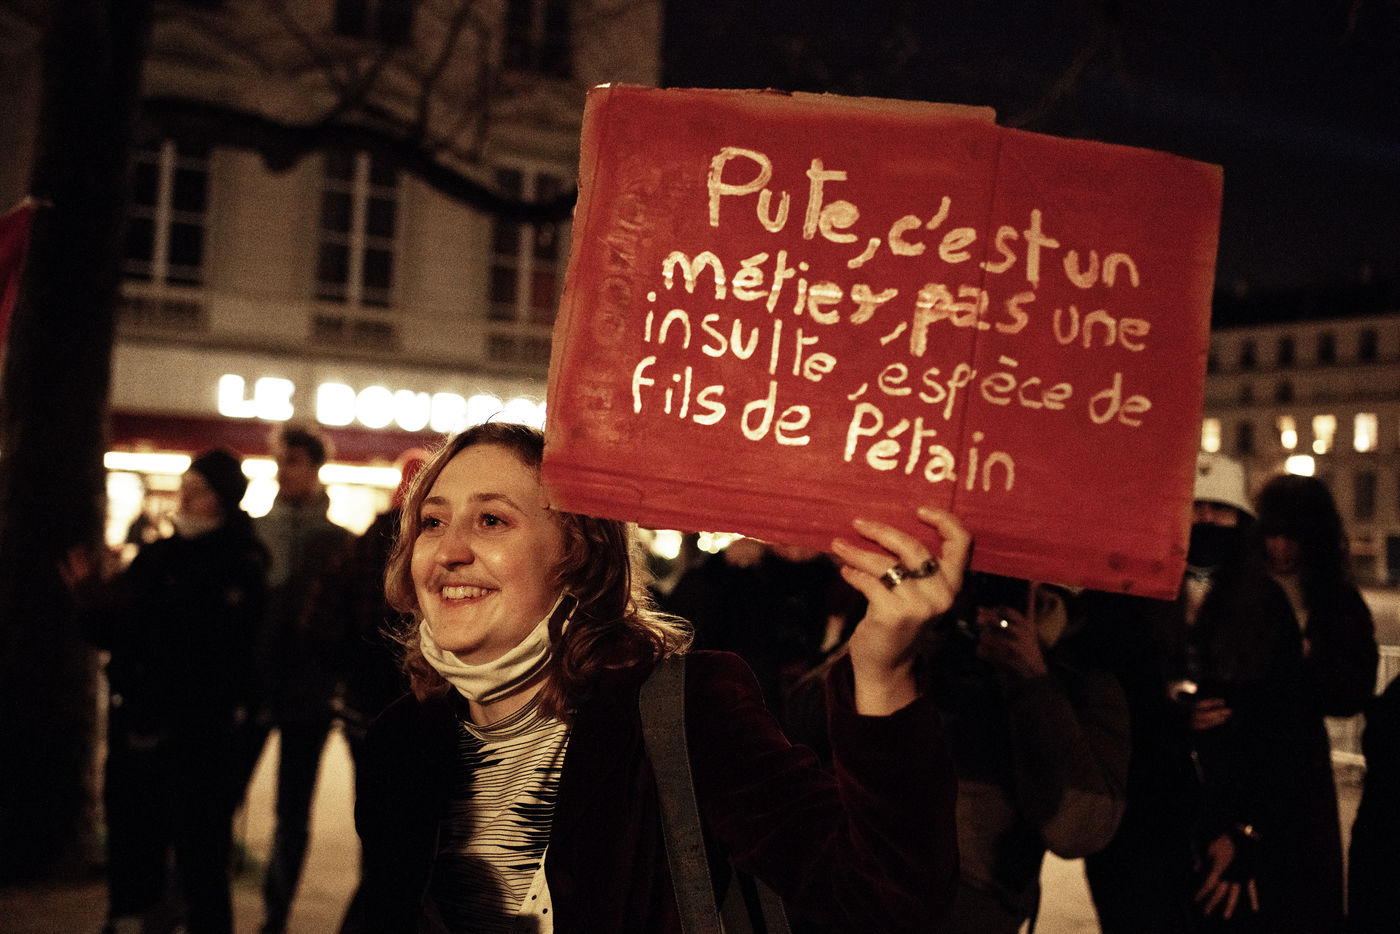 Pute, c'est un
métier, pas une
insulte, espèce de
fils de Pétain
LE